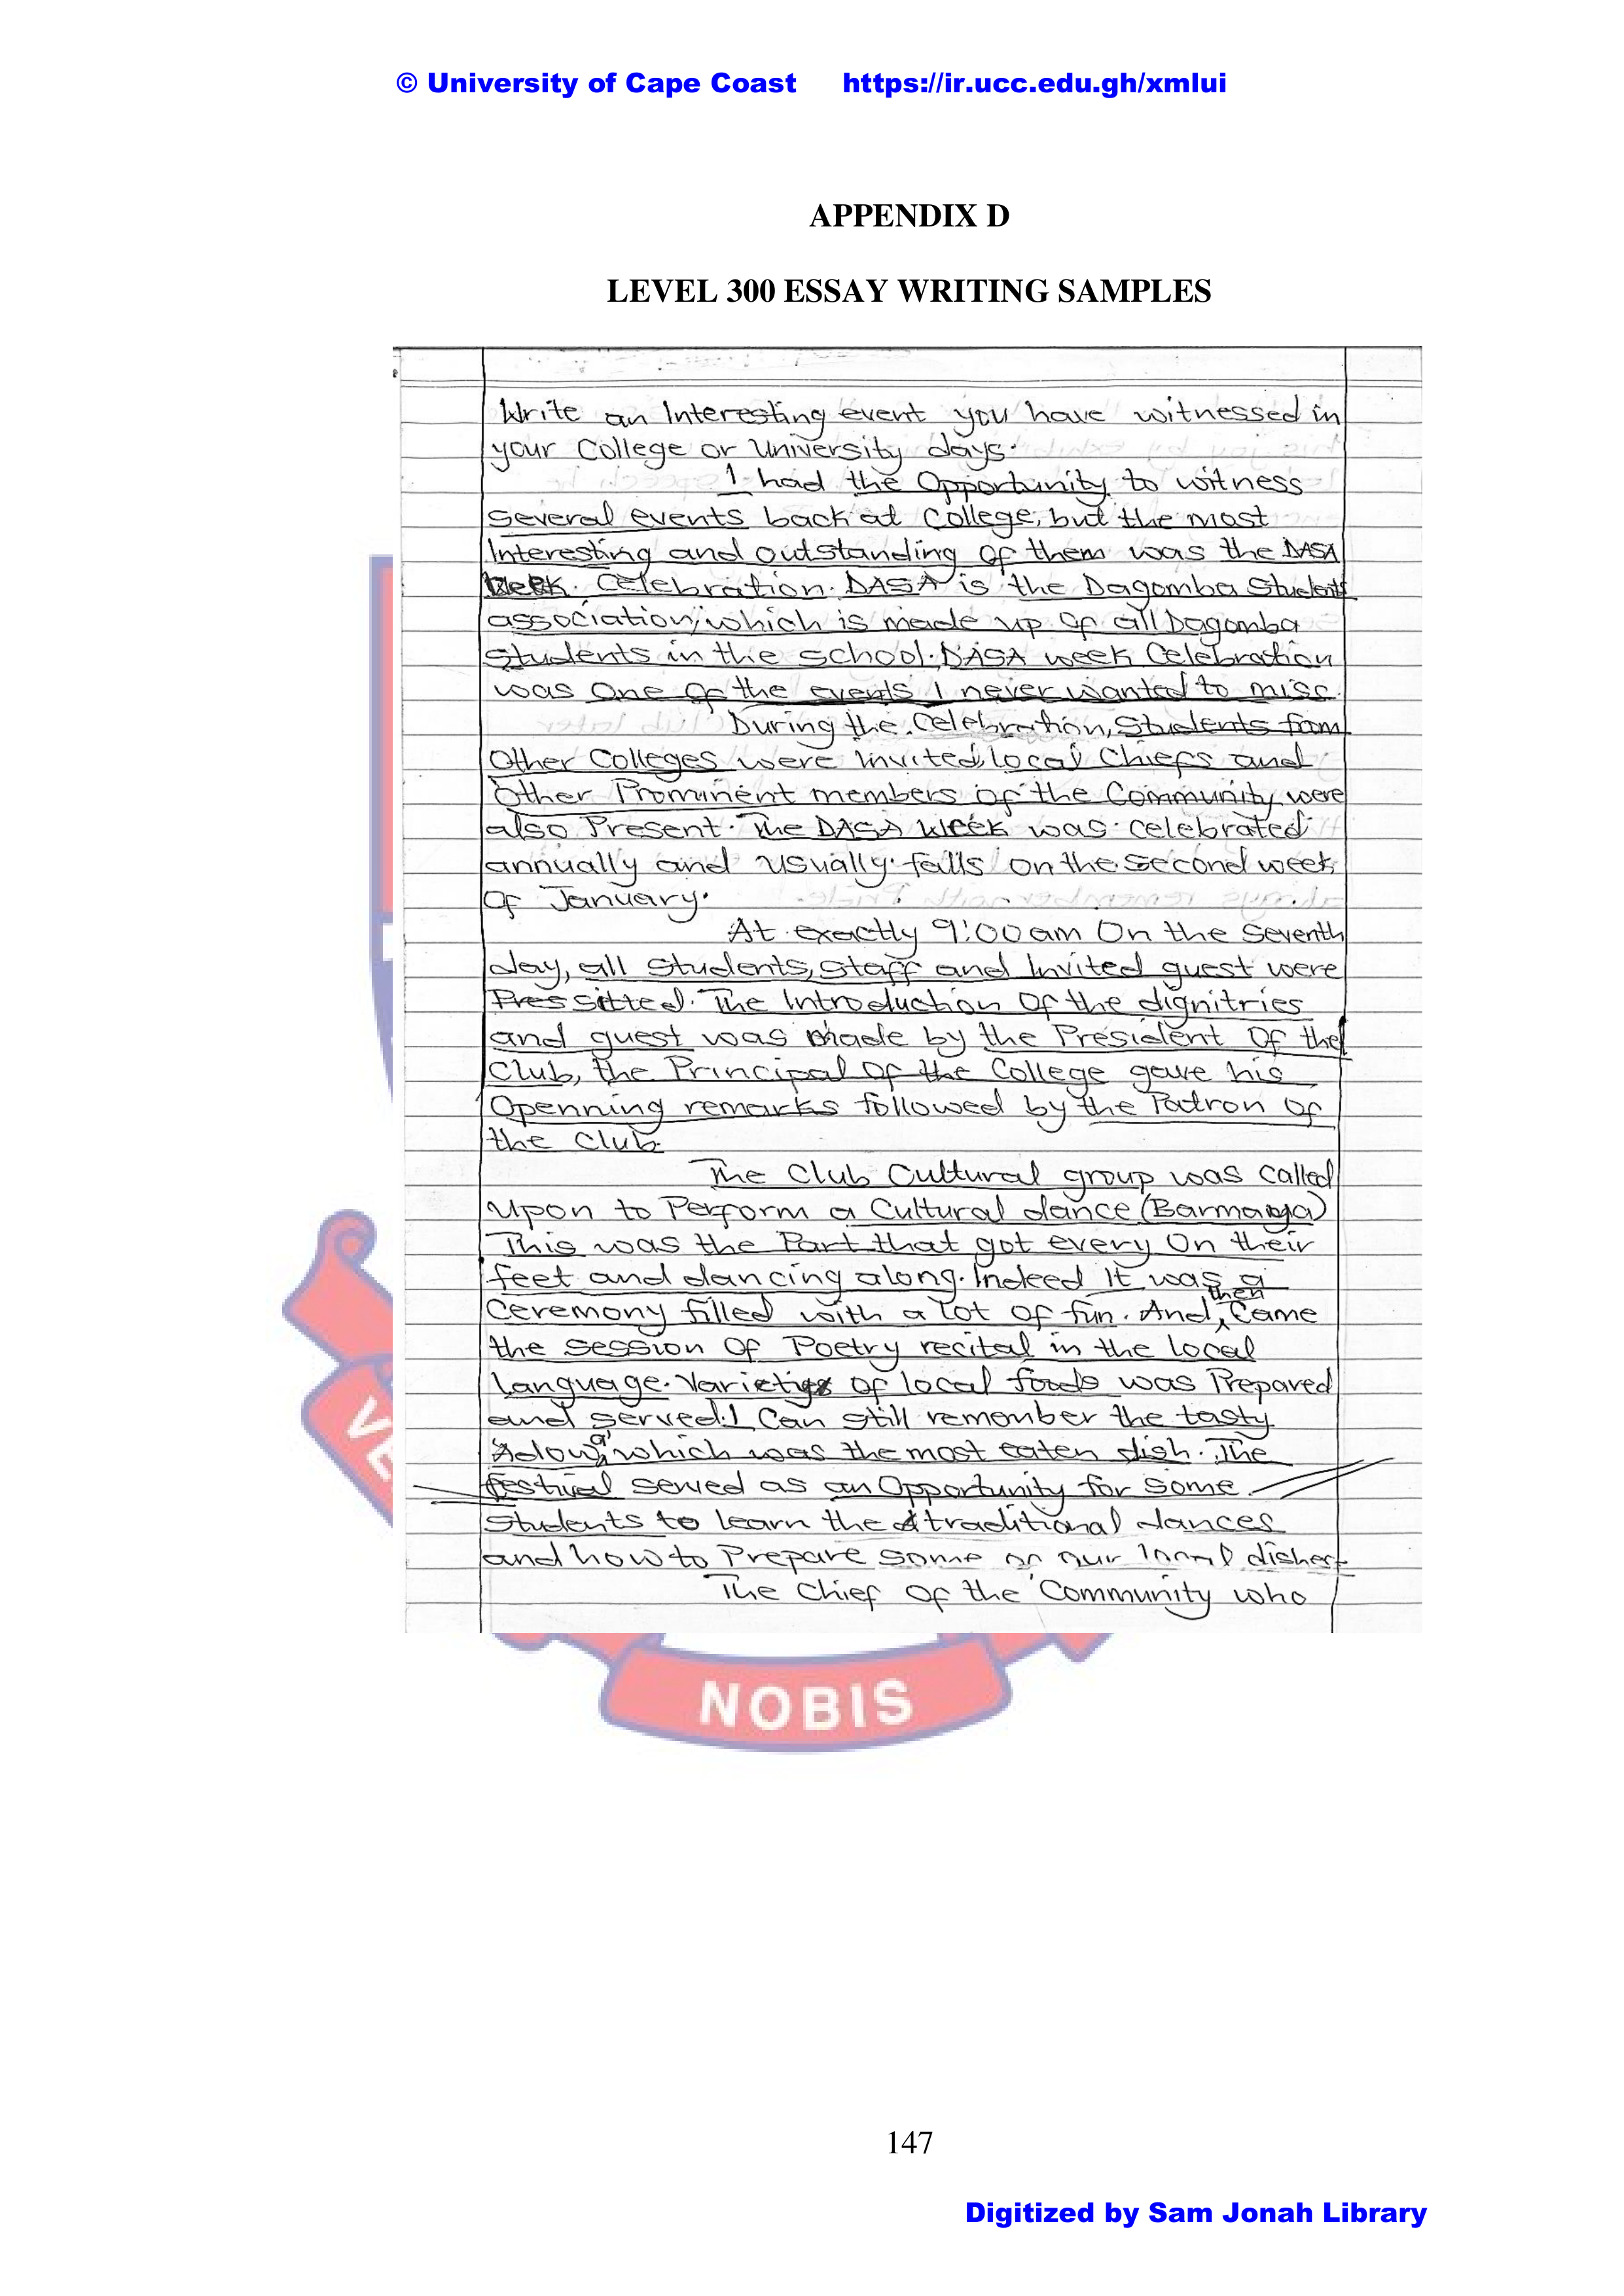 © University of Cape Coast https://ir.ucc.edu.gh/xmlui
APPENDIX D
LEVEL 300 ESSAY WRITING SAMPLES
Write an Interesting event you have witnessed in
your College or University days.
I had the Opportunity to witness
Several events back at College, but the most
Interesting and outstanding of them was the DASA
Week. Celebration. DASA is the Dagomba Students
association, which is made up of all Dagomba
Students in the school. DASA week Celebration
was One of the events I never wanted to miss.
During the Celebration, Students from
Other Colleges were invited, local Chiefs and
Other Prominent members of the Community were
also Present. The DASA Week was celebrated
annually and usually falls on the second week
of January.
At exactly 9:00am On the Seventh
day, all students, staff and Invited guest were
Pres sitted. The Introduction of the dignitries
and guest was made by the President Of the
Club, the Principal of the College gave his
Openning remarks followed by the Patron of
the Club.
The Club Cultural group was called
Upon to Perform a Cultural dance (Barmaya)
This was the Part that got every On their
feet and dancing along. Indeed It was a
Ceremony filled with a lot of fun. And, then Came
the session of Poetry recital in the local
language. Varieties of local foods was Prepared
and served. I Can still remember the tasty
which was the most eaten dish. The
festival served as an Opportunity for some
Students to learn the traditional dances
and how to Prepare some our local dishes
The Chief of the Community who
VE
NOBIS
147
Digitized by Sam Jonah Library